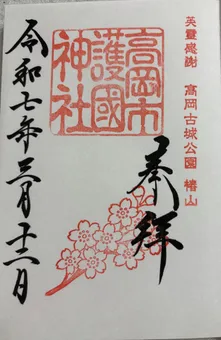 英靈感謝 高岡古城公園 椿山
高岡市
護國
神社
奉拝
令和七年三月十二日